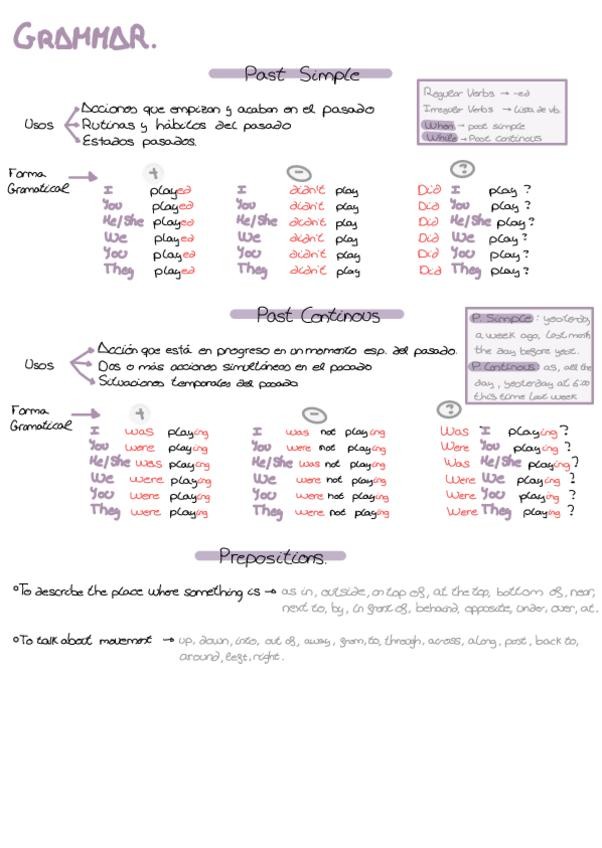 GRAMMAR.
Past Simple
Regular Verbs → -ed
Irregular Verbs → Lista de vb.
When → past simple
While → Past continous
Usos
Acciones que empizan y acaban en el pasado
Rutinas y hábitos del pasado
Estados pasados.
Forma Gramatical
+ - ?
I played I didn't play Did I play ?
You played You didn't play Did You play ?
He/She played He/She didn't play Did He/She play?
We played We didn't play Did We play?
You played You didn't play Did You play?
They played They didn't play Did They play?
Past Continous
P. Simple : yesterday
a week ago, last month
the day before yest.
P. Continous as, all the
day, yesterday at 6:00
this time last week
Usos
Acción que está en progreso en un momento esp. del pasado.
Dos o más acciones simultáneas en el pasado
Situaciones temporales del pasado
Forma Gramatical
+ - ?
I was playing I was not playing Was I playing?
You were playing You were not playing Were You playing?
He/She was playing He/She was not playing Was He/She playing?
We were playing We were not playing Were We playing?
You were playing You were not playing Were You playing?
They were playing They were not playing Were They playing ?
Prepositions.
°To describe the place where something is → as in, outside, on top of, at the top, bottom of, near,
next to, by, in front of, behaind, opposite, under, over, at.
°To talk about movement → up, down, into, out of, away, from, to, through, across, along, past, back to,
around, left, right.